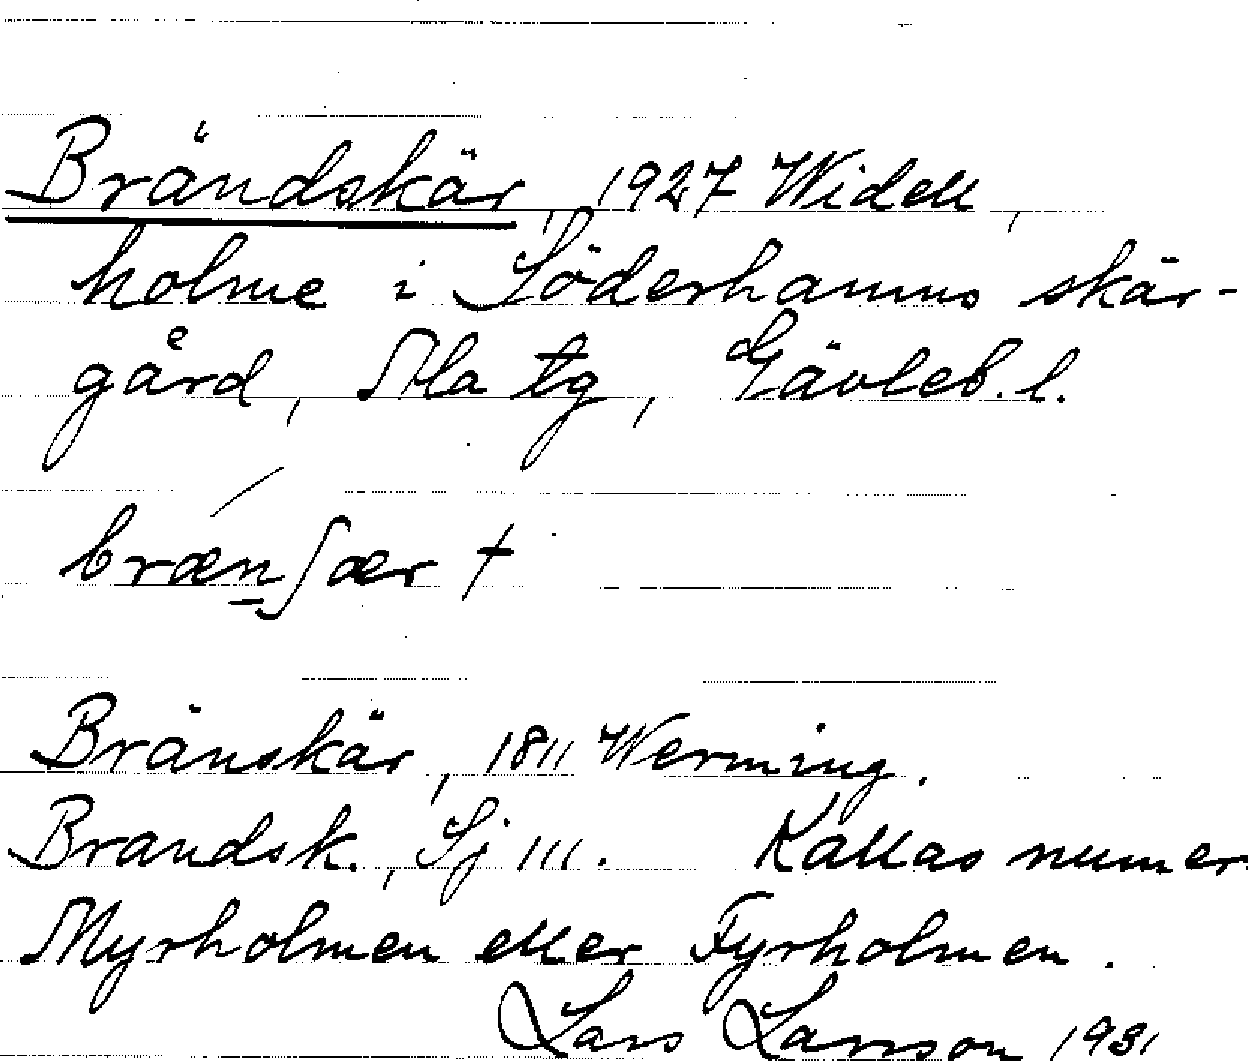 Brändskär, 1927 Widell,
holme i Söderhamns skär-
gård, Ala tg, Gävleb. l.
brænʃær †
Bränskär, 1811 Werming.
Brandsk., Sj 111. Kallas numer
Myrholmen eller Fyrholmen.
Lars Larsson 1931